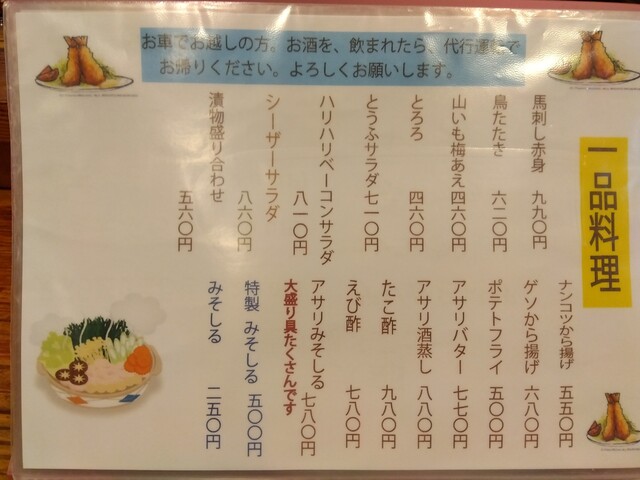 お車でお越しの方。お酒を、飲まれたら、代行運転で
お帰りください。よろしくお願いします。
一品料理
馬刺し赤身 九九〇円
鳥たたき 六二〇円
山いも梅あえ 四六〇円
とろろ 四六〇円
とうふサラダ 七一〇円
ハリハリベーコンサラダ 八一〇円
シーザーサラダ 八六〇円
漬物盛り合わせ 五六〇円
ナンコツから揚げ 五五〇円
ゲソから揚げ 六八〇円
ポテトフライ 五〇〇円
アサリバター 七七〇円
アサリ酒蒸し 八八〇円
たこ酢 九八〇円
えび酢 七八〇円
アサリみそしる 七八〇円
大盛り具たくさんです
特製 みそしる 五〇〇円
みそしる 二五〇円